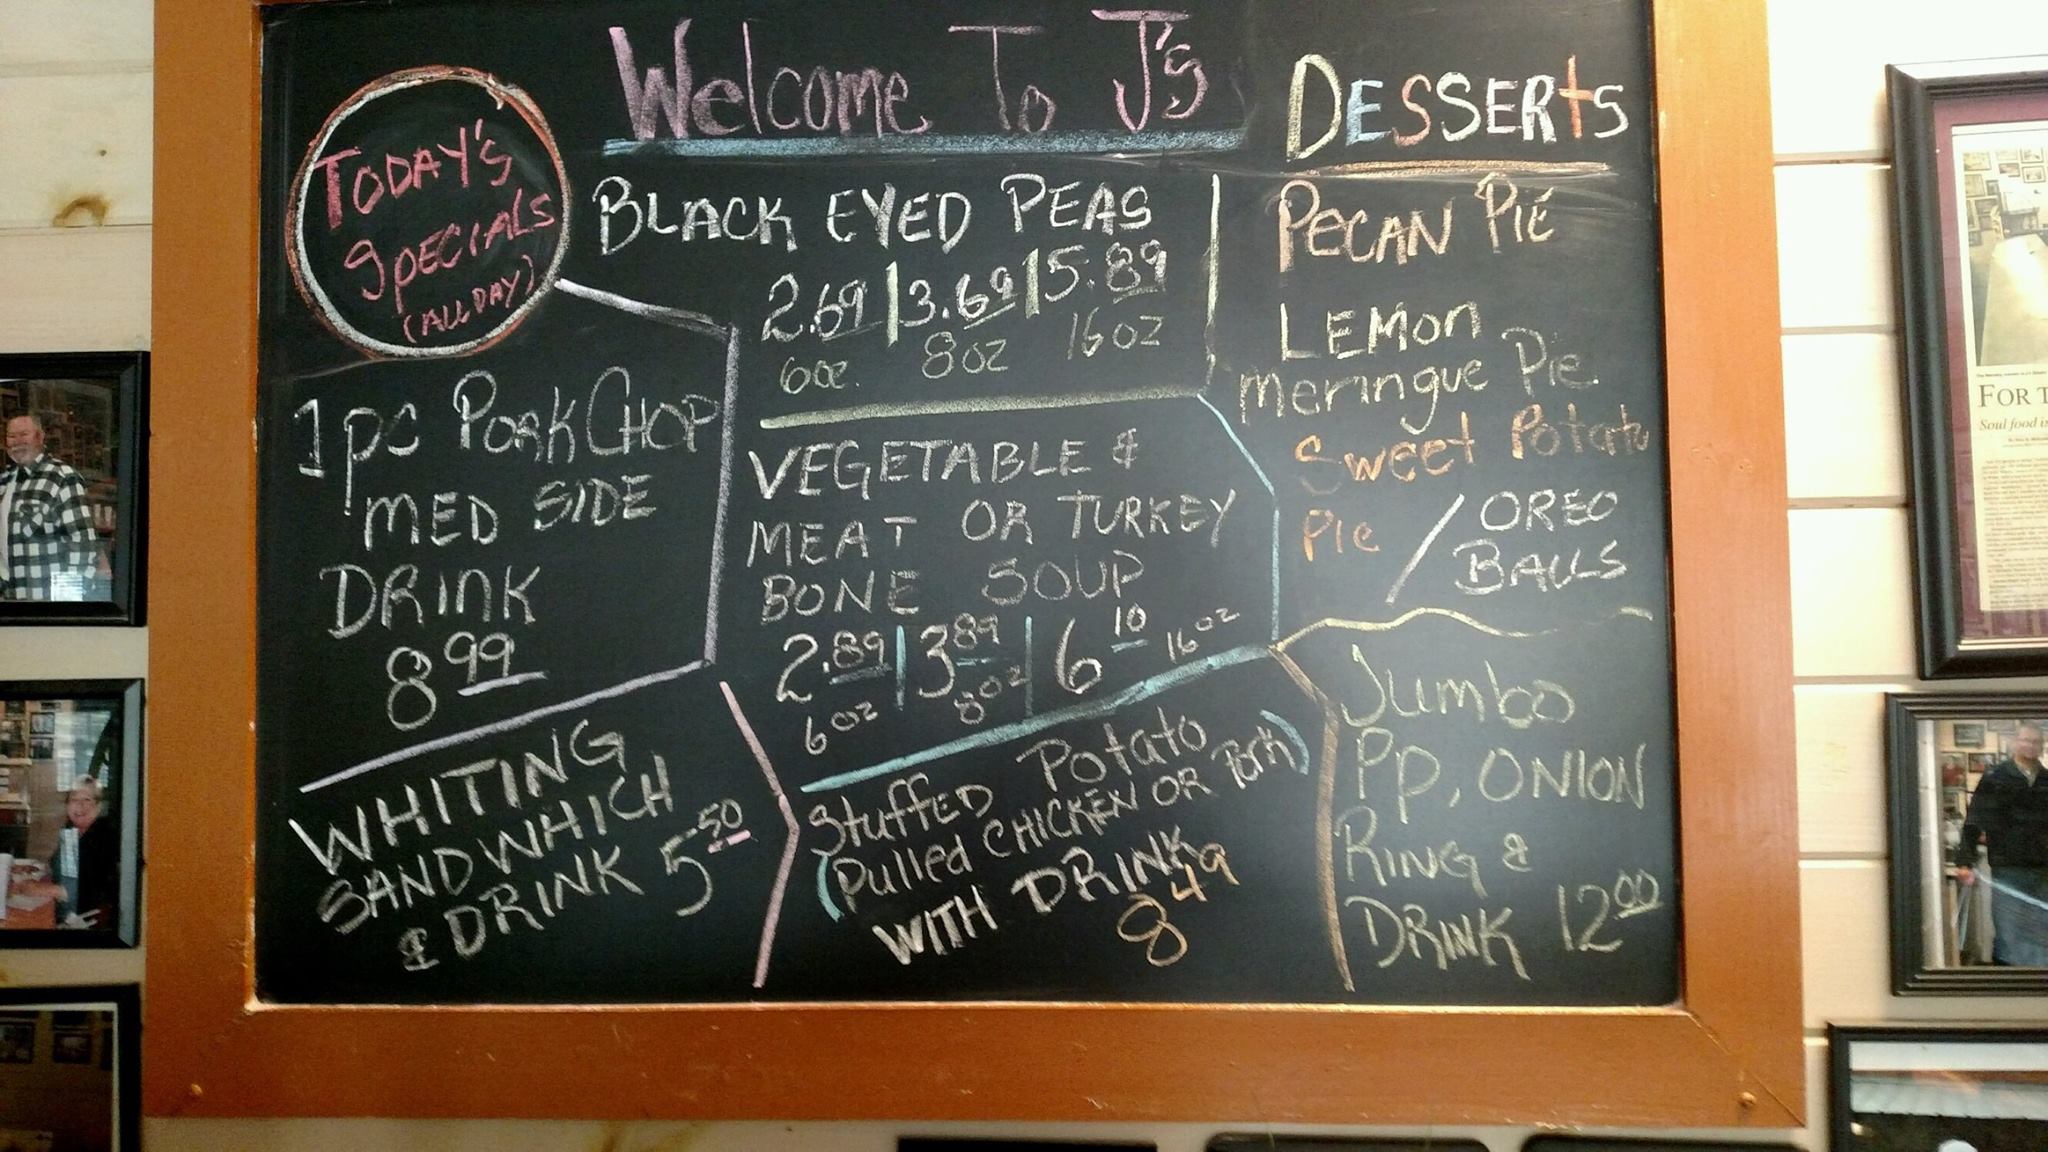 Welcome To J's
TODAY'S
SPECIALS
(ALL DAY)
1pc PORK CHOP
MED SIDE
DRINK
8 99
BLACK EYED PEAS
2.69 | 3.69 | 5.89
6oz. 8oz 16oz
VEGETABLE &
MEAT OR TURKEY
BONE SOUP
2.89 | 3 89 | 6 10 16oz
6oz 8oz
WHITING
SANDWHICH
& DRINK 5 50
Stuffed Potato
(Pulled CHICKEN OR Pork)
WITH DRINK
8 49
DESSERTS
PECAN PIE
LEMON
meringue Pie
Sweet Potato
Pie / OREO
BALLS
Jumbo
PP, ONION
RING &
DRINK 12 00
FOR T
Soul food is